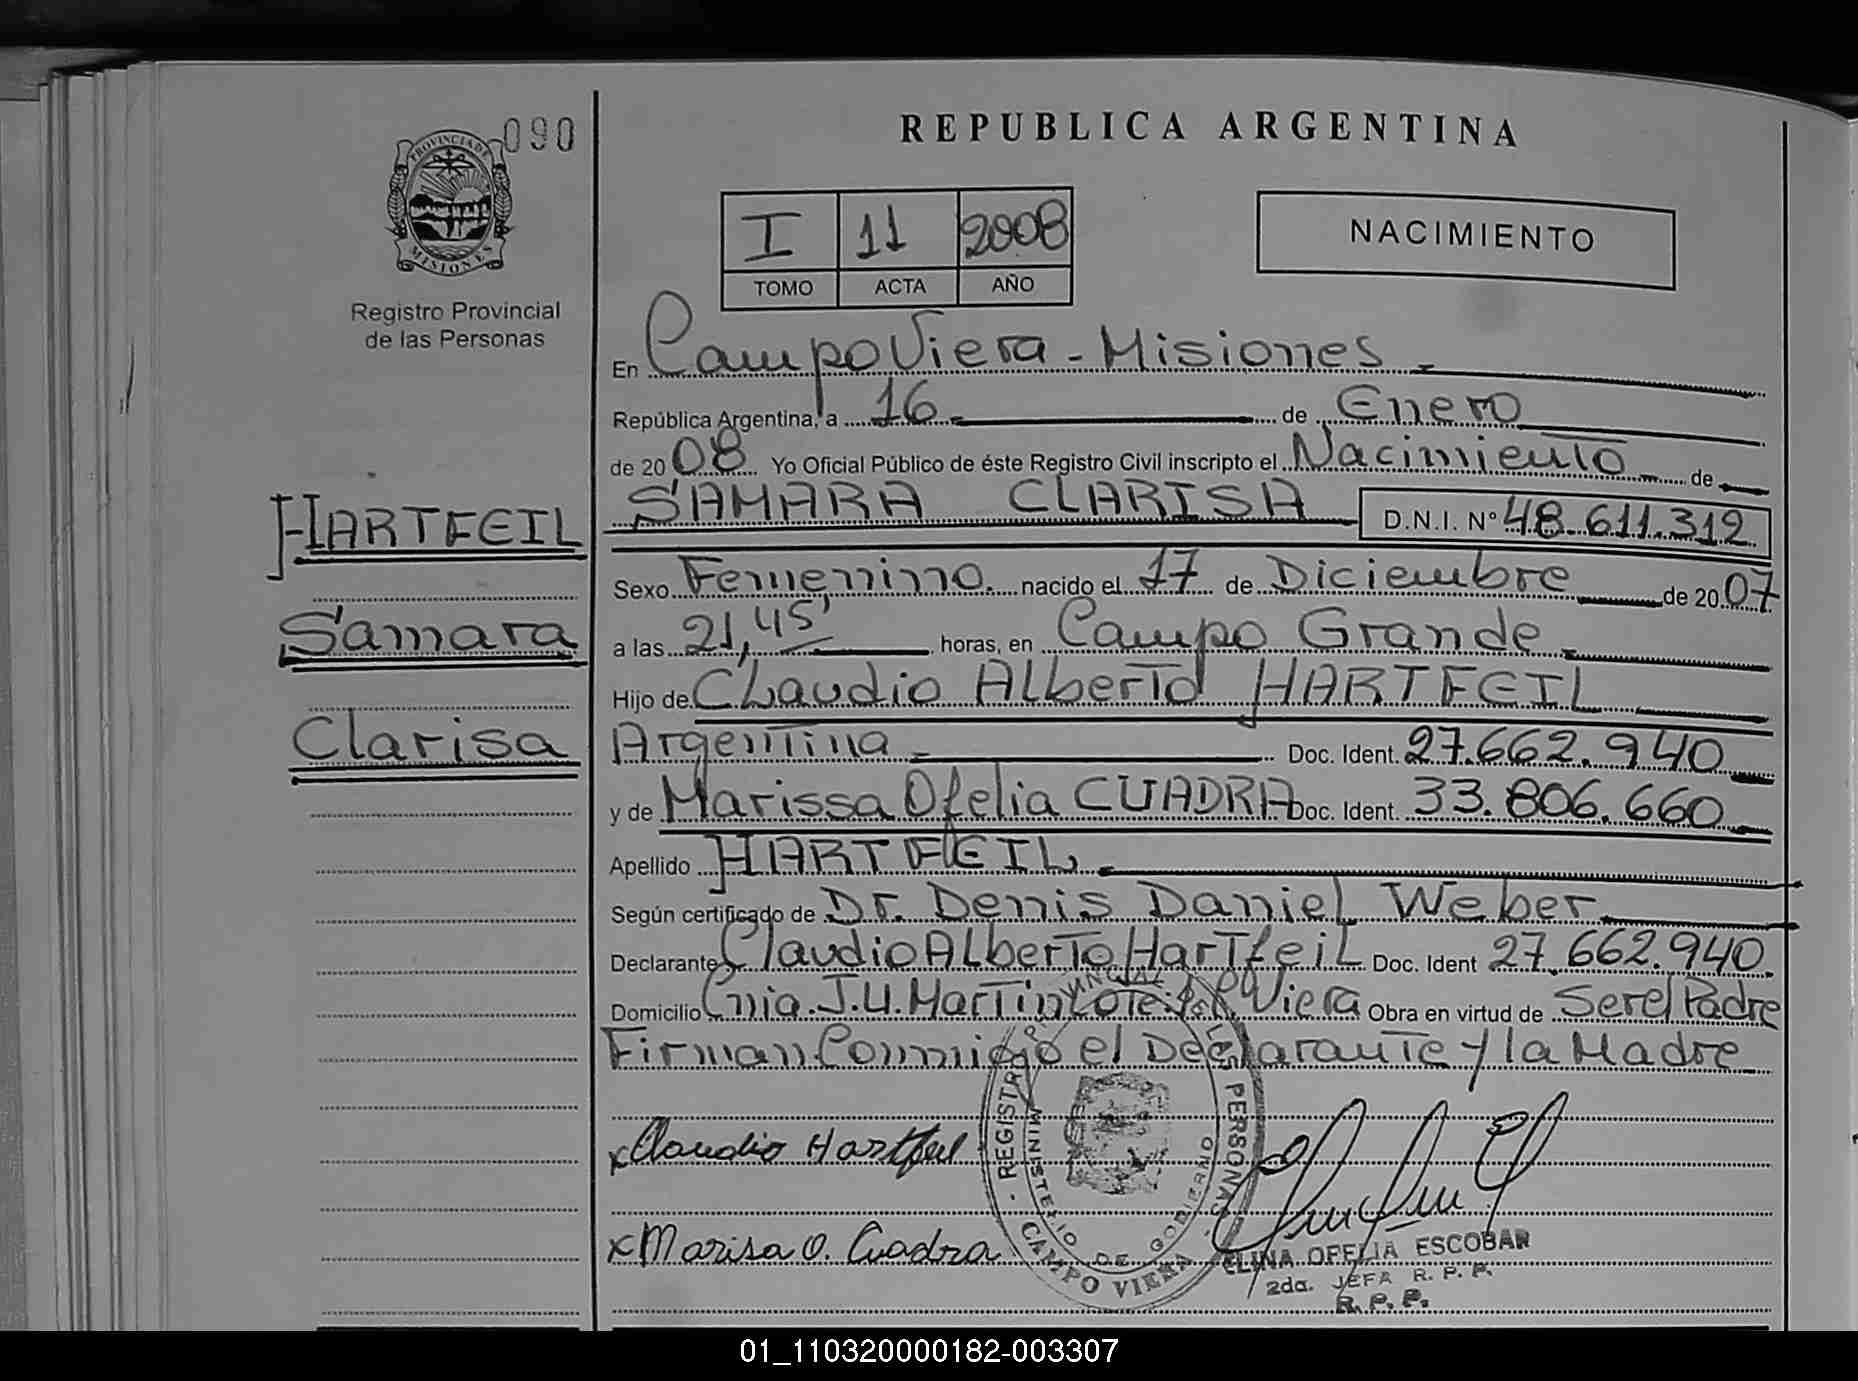 090
PROVINCIA DE
MISIONES
Registro Provincial
de las Personas
HARTFEIL
Samara
Clarisa
REPUBLICA ARGENTINA
I 11 2008
TOMO ACTA AÑO
NACIMIENTO
En Campo Viera - Misiones
República Argentina, a 16 de Enero
de 2008 Yo Oficial Público de éste Registro Civil inscripto el Nacimiento de
SAMARA CLARISA D.N.I. Nº 48.611.312
Sexo Femenino. nacido el 17 de Diciembre de 2007
a las 21,45' horas, en Campo Grande
Hijo de Claudio Alberto HARTFEIL
Argentina Doc. Ident. 27.662.940
y de Marissa Ofelia CUADRA Doc. Ident. 33.806.660
Apellido HARTFEIL
Según certificado de Dr. Denis Daniel Weber
Declarante Claudio Alberto Hartfeil Doc. Ident 27.662.940
Domicilio Cnia. J.U. Martin Lote: Viera Obra en virtud de Ser el Padre
Firman Conmigo el Declarante y la Madre
x Claudio Hartfeil
x Marisa O. Cuadra
REGISTRO PROVINCIAL DE LAS PERSONAS
MINISTERIO DE GOBIERNO
CAMPO VIERA
ELINA OFELIA ESCOBAR
2da. JEFA R. P. P.
R. P. P.
01_110320000182-003307